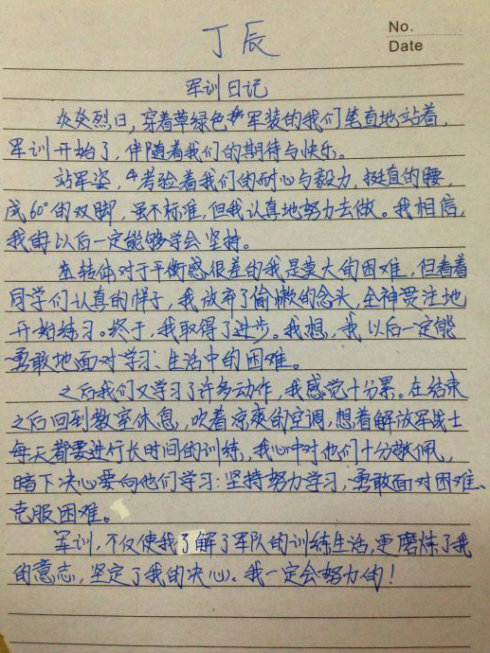 No.
Date
丁辰
军训日记
炎炎烈日，穿着草绿色军装的我们笔直地站着，
军训开始了，伴随着我们的期待与快乐。
站军姿，考验着我们的耐心与毅力，挺直的腰，
成60°的双脚，虽不标准，但我认真地努力去做。我相信，
我以后一定能够学会坚持。
转体对于平衡感很差的我是莫大的困难，但看着
同学们认真的样子，我放弃了偷懒的念头，全神贯注地
开始练习。终于，我取得了进步。我想，我以后一定能
勇敢地面对学习、生活中的困难。
之后我们又学习了许多动作，我感觉十分累。在结束
之后回到教室休息，吹着凉爽的空调，想着解放军战士
每天都要进行长时间的训练，我心中对他们十分敬佩，
暗下决心要向他们学习：坚持努力学习，勇敢面对困难、
克服困难。
军训，不仅使我了解了军队的训练生活，更磨炼了我
的意志，坚定了我的决心。我一定会努力的！